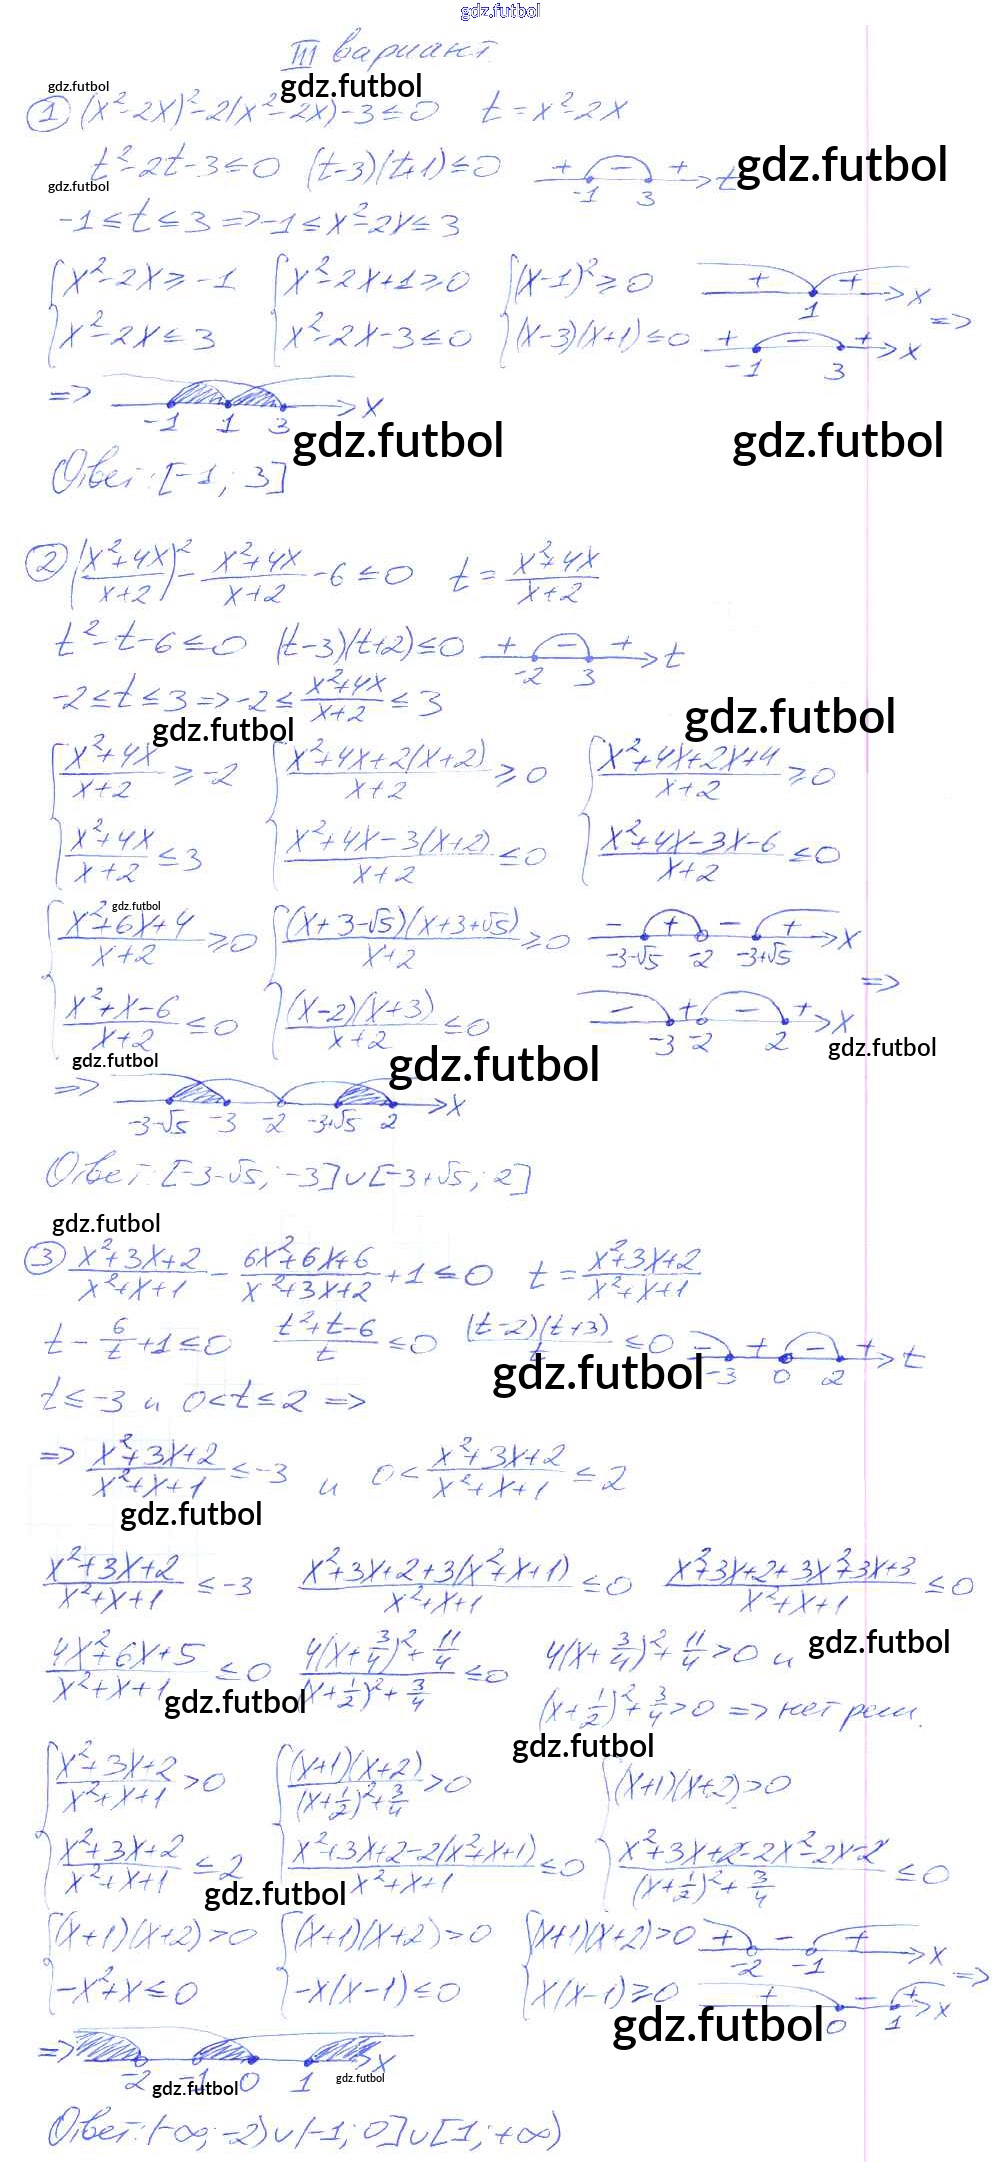 gdz.futbol
III вариант
gdz.futbol gdz.futbol
① (x²-2x)²-2(x²-2x)-3≤0 t=x²-2x
t²-2t-3≤0 (t-3)(t+1)≤0 + - + -1 3 t gdz.futbol
gdz.futbol
-1≤t≤3=>-1≤x²-2x≤3
{x²-2x≥-1 {x²-2x+1≥0 {(x-1)²≥0 + + 1 x
{x²-2x≤3 {x²-2x-3≤0 {(x-3)(x+1)≤0 + - + -1 3 x =>
=> -1 1 3 x
gdz.futbol gdz.futbol
Ответ: [-1; 3]
② ((x²+4x)/(x+2))² - (x²+4x)/(x+2) - 6≤0 t = (x²+4x)/(x+2)
t²-t-6≤0 (t-3)(t+2)≤0 + - + -2 3 t
-2≤t≤3=>-2≤(x²+4x)/(x+2)≤3
gdz.futbol gdz.futbol
{(x²+4x)/(x+2)≥-2 {(x²+4x+2(x+2))/(x+2)≥0 {(x²+4x+2x+4)/(x+2)≥0
{(x²+4x)/(x+2)≤3 {(x²+4x-3(x+2))/(x+2)≤0 {(x²+4x-3x-6)/(x+2)≤0
gdz.futbol
{(x²+6x+4)/(x+2)≥0 {((x+3-√5)(x+3+√5))/(x+2)≥0 - + - + -3-√5 -2 -3+√5 x
{(x²+x-6)/(x+2)≤0 {((x-2)(x+3))/(x+2)≤0 - + - + -3 -2 2 x =>
gdz.futbol gdz.futbol gdz.futbol
=> -3-√5 -3 -2 -3+√5 2 x
Ответ: [-3-√5; -3]∪[-3+√5; 2]
gdz.futbol
③ (x²+3x+2)/(x²+x+1) - (6x²+6x+6)/(x²+3x+2) + 1≤0 t = (x²+3x+2)/(x²+x+1)
t - 6/t + 1≤0 (t²+t-6)/t≤0 ((t-2)(t+3))/t≤0 - + - + -3 0 2 t
gdz.futbol
t≤-3 и 0<t≤2 =>
=> (x²+3x+2)/(x²+x+1)≤-3 и 0<(x²+3x+2)/(x²+x+1)≤2
gdz.futbol
(x²+3x+2)/(x²+x+1)≤-3 (x²+3x+2+3(x²+x+1))/(x²+x+1)≤0 (x²+3x+2+3x²+3x+3)/(x²+x+1)≤0
(4x²+6x+5)/(x²+x+1)≤0 (4(x+3/4)²+11/4)/((x+1/2)²+3/4)≤0 4(x+3/4)²+11/4>0 и gdz.futbol
gdz.futbol (x+1/2)²+3/4>0 => нет реш.
gdz.futbol
{(x²+3x+2)/(x²+x+1)>0 {((x+1)(x+2))/((x+1/2)²+3/4)>0 {(x+1)(x+2)>0
{(x²+3x+2)/(x²+x+1)≤2 {(x²+3x+2-2(x²+x+1))/(x²+x+1)≤0 {(x²+3x+2-2x²-2x-2)/((x+1/2)²+3/4)≤0
gdz.futbol
{(x+1)(x+2)>0 {(x+1)(x+2)>0 {(x+1)(x+2)>0 + - + -2 -1 x
{-x²+x≤0 {-x(x-1)≤0 {x(x-1)≥0 + - + 0 1 x =>
gdz.futbol
=> -2 -1 0 1 x
gdz.futbol gdz.futbol
Ответ: (-∞; -2)∪(-1; 0]∪[1; +∞)